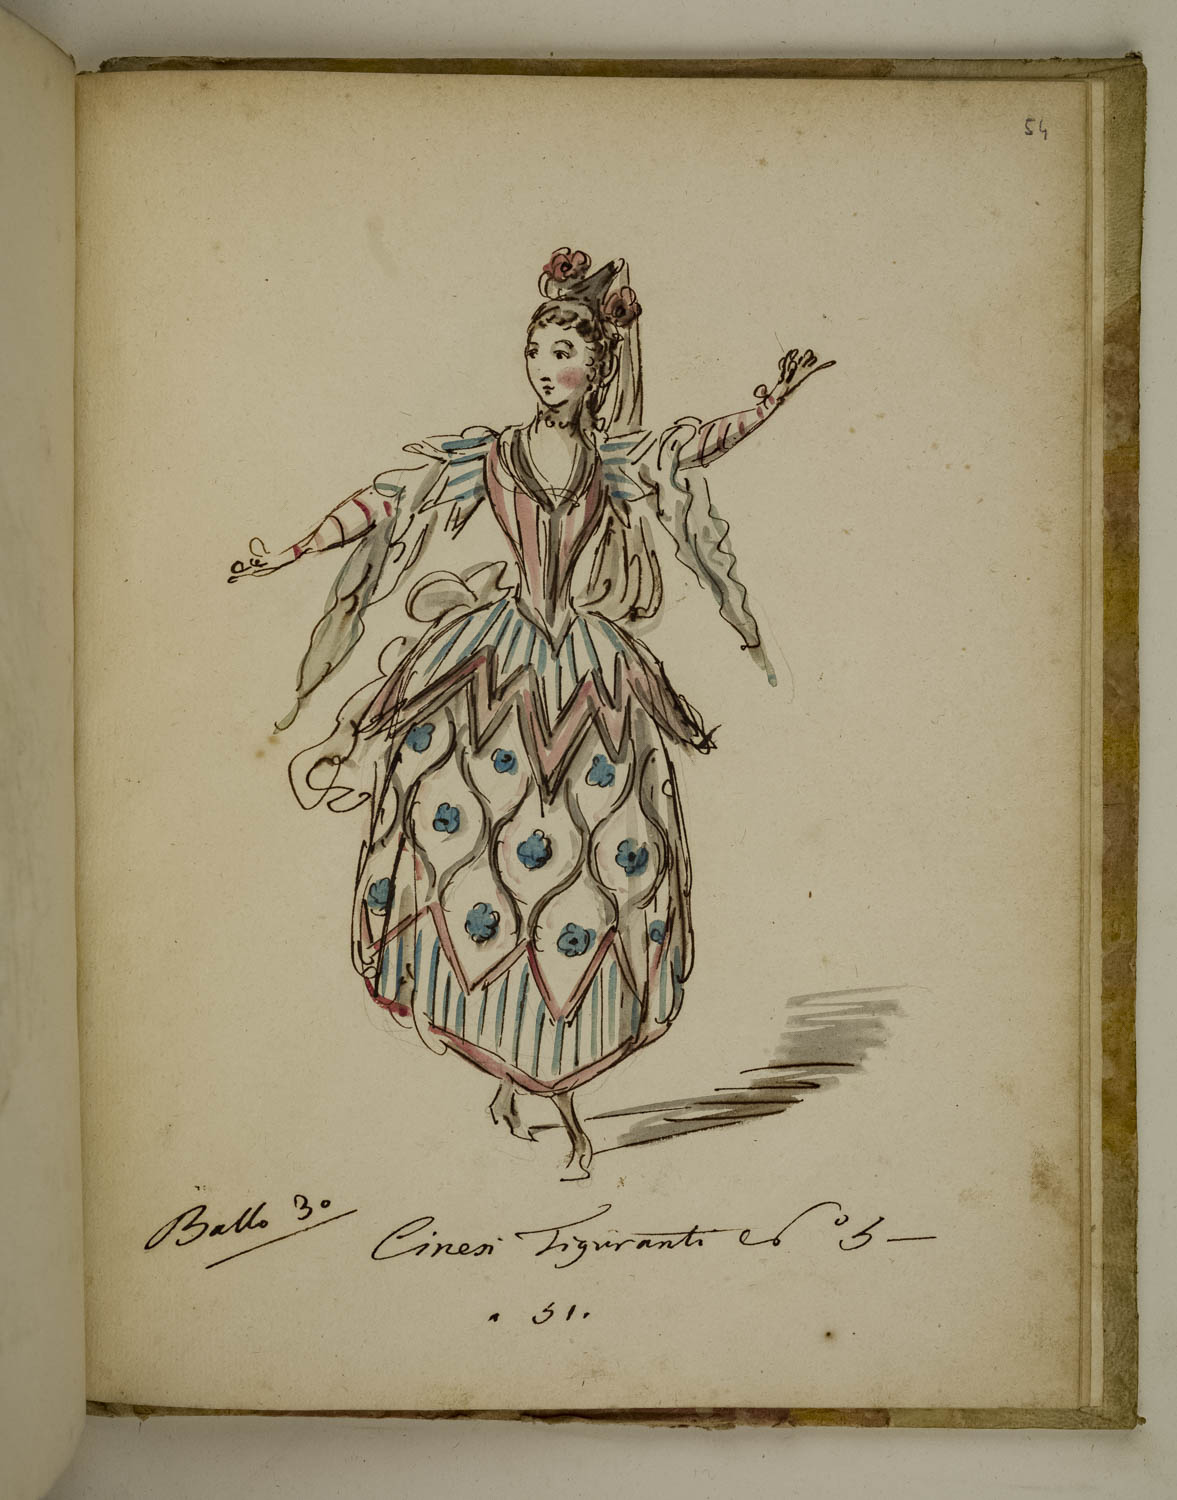 54
Ballo 3º
Cinesi Figuranti Nº 5 —
. 51.